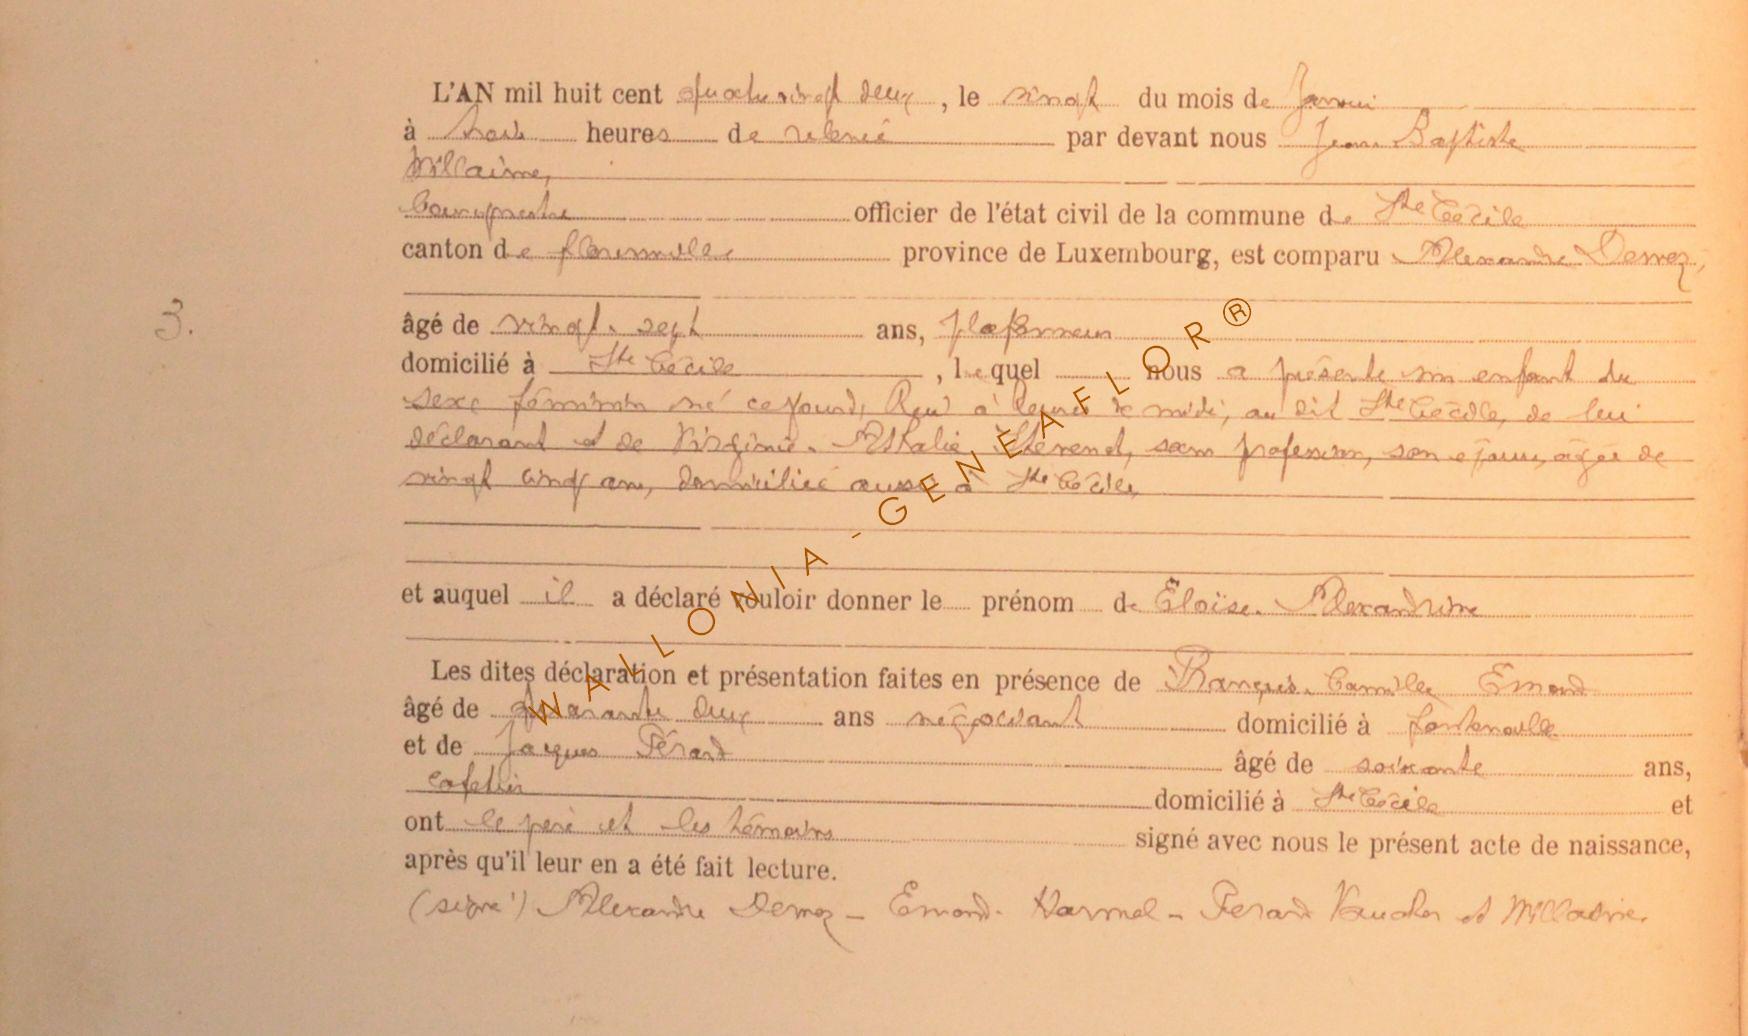 L'AN mil huit cent quatre vingt deux, le vingt du mois de Janvier
à huit heures de relevée par devant nous Jean Baptiste
Millaime,
Bourgmestre officier de l'état civil de la commune de Ste Cécile
canton de florenville province de Luxembourg, est comparu Alexandre Demez,
3.
âgé de vingt-sept ans, plafonneur
domicilié à Ste Cécile, lequel nous a présenté un enfant du
sexe féminin né ce jourd'hui à heures de midi, au dit Ste Cécile, de lui
déclarant et de Virginie-Athalie Thévenet, sans profession, son épouse, âgée de
vingt cinq ans, domiciliée aussi à Ste Cécile,
et auquel il a déclaré vouloir donner le prénom de Eloïse-Alexandrine
Les dites déclaration et présentation faites en présence de François-Camille Emond
âgé de quarante deux ans négociant domicilié à fontenoille
et de Jacques Pérard âgé de soixante ans,
cafetier domicilié à Ste Cécile et
ont le père et les témoins signé avec nous le présent acte de naissance,
après qu'il leur en a été fait lecture.
(signé) Alexandre Demez - Emond-Harmel - Perard et Millaime
WALLONIA-GENEAFLOR®